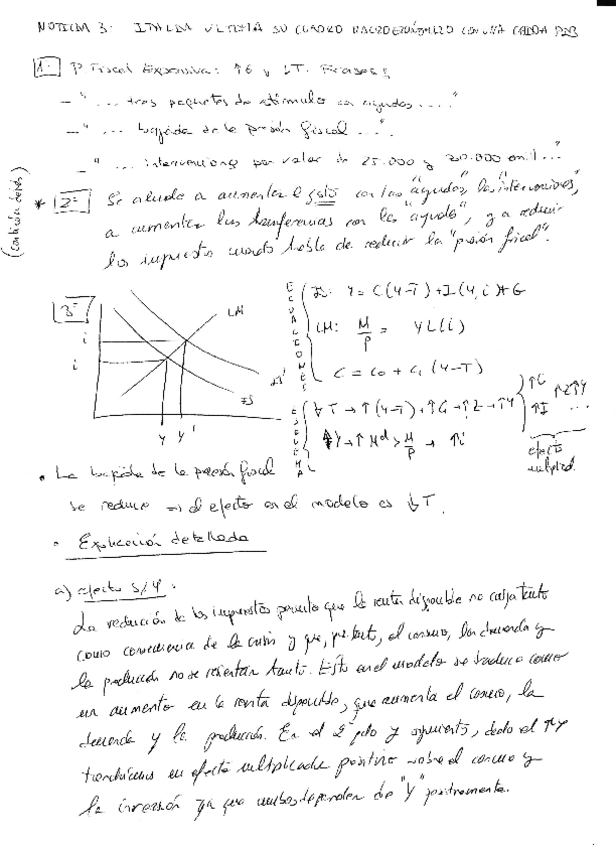 NOTICIA 3: ITALIA ULTIMA SU CUADRO MACROECONÓMICO CON UNA CAIDA PIB
1.- P. Fiscal Expansiva: ↑G y ↓T. Frases:
- "... tres paquetes de estímulo en ayudas ...."
- " ... bajada de la presión fiscal ...".
- " ... intervenciones por valor de 25.000 y 30.000 mill ..."
(continúa detrás)
* 2.- Se alude a aumentar el gasto con las "ayudas, las intervenciones",
a aumentar las transferencias con las "ayudas", y a reducir
los impuestos cuando habla de reducir la "presión fiscal".
3.-
i
i
LM
IS'
IS
Y Y'
ECUACIONES
IS: Y = C(Y-T) + I(Y,i) + G
LM: M/P = YL(i)
C = C0 + C1 (Y-T)
ESQUEMA
↓T → ↑(Y-T) → ↑C → ↑Z → ↑Y
↑C
↑I
↑Z↑Y
...
efecto
multiplicad.
↑Y → ↑M^d > M/P → ↑i
• La bajada de la presión fiscal
se reduce ⇒ el efecto en el modelo es ↓T.
• Explicación detallada
a) efecto S/Y:
La reducción de los impuestos permite que la renta disponible no caiga tanto
como consecuencia de la crisis y que, por tanto, el consumo, la demanda y
la producción no se resientan tanto. Esto en el modelo se traduce como
un aumento en la renta disponible, que aumenta el consumo, la
demanda y la producción. En el 2º pdo y siguientes, dado el ↑Y
tendríamos un efecto multiplicador positivo sobre el consumo y
la inversión ya que ambos dependen de "Y" positivamente.